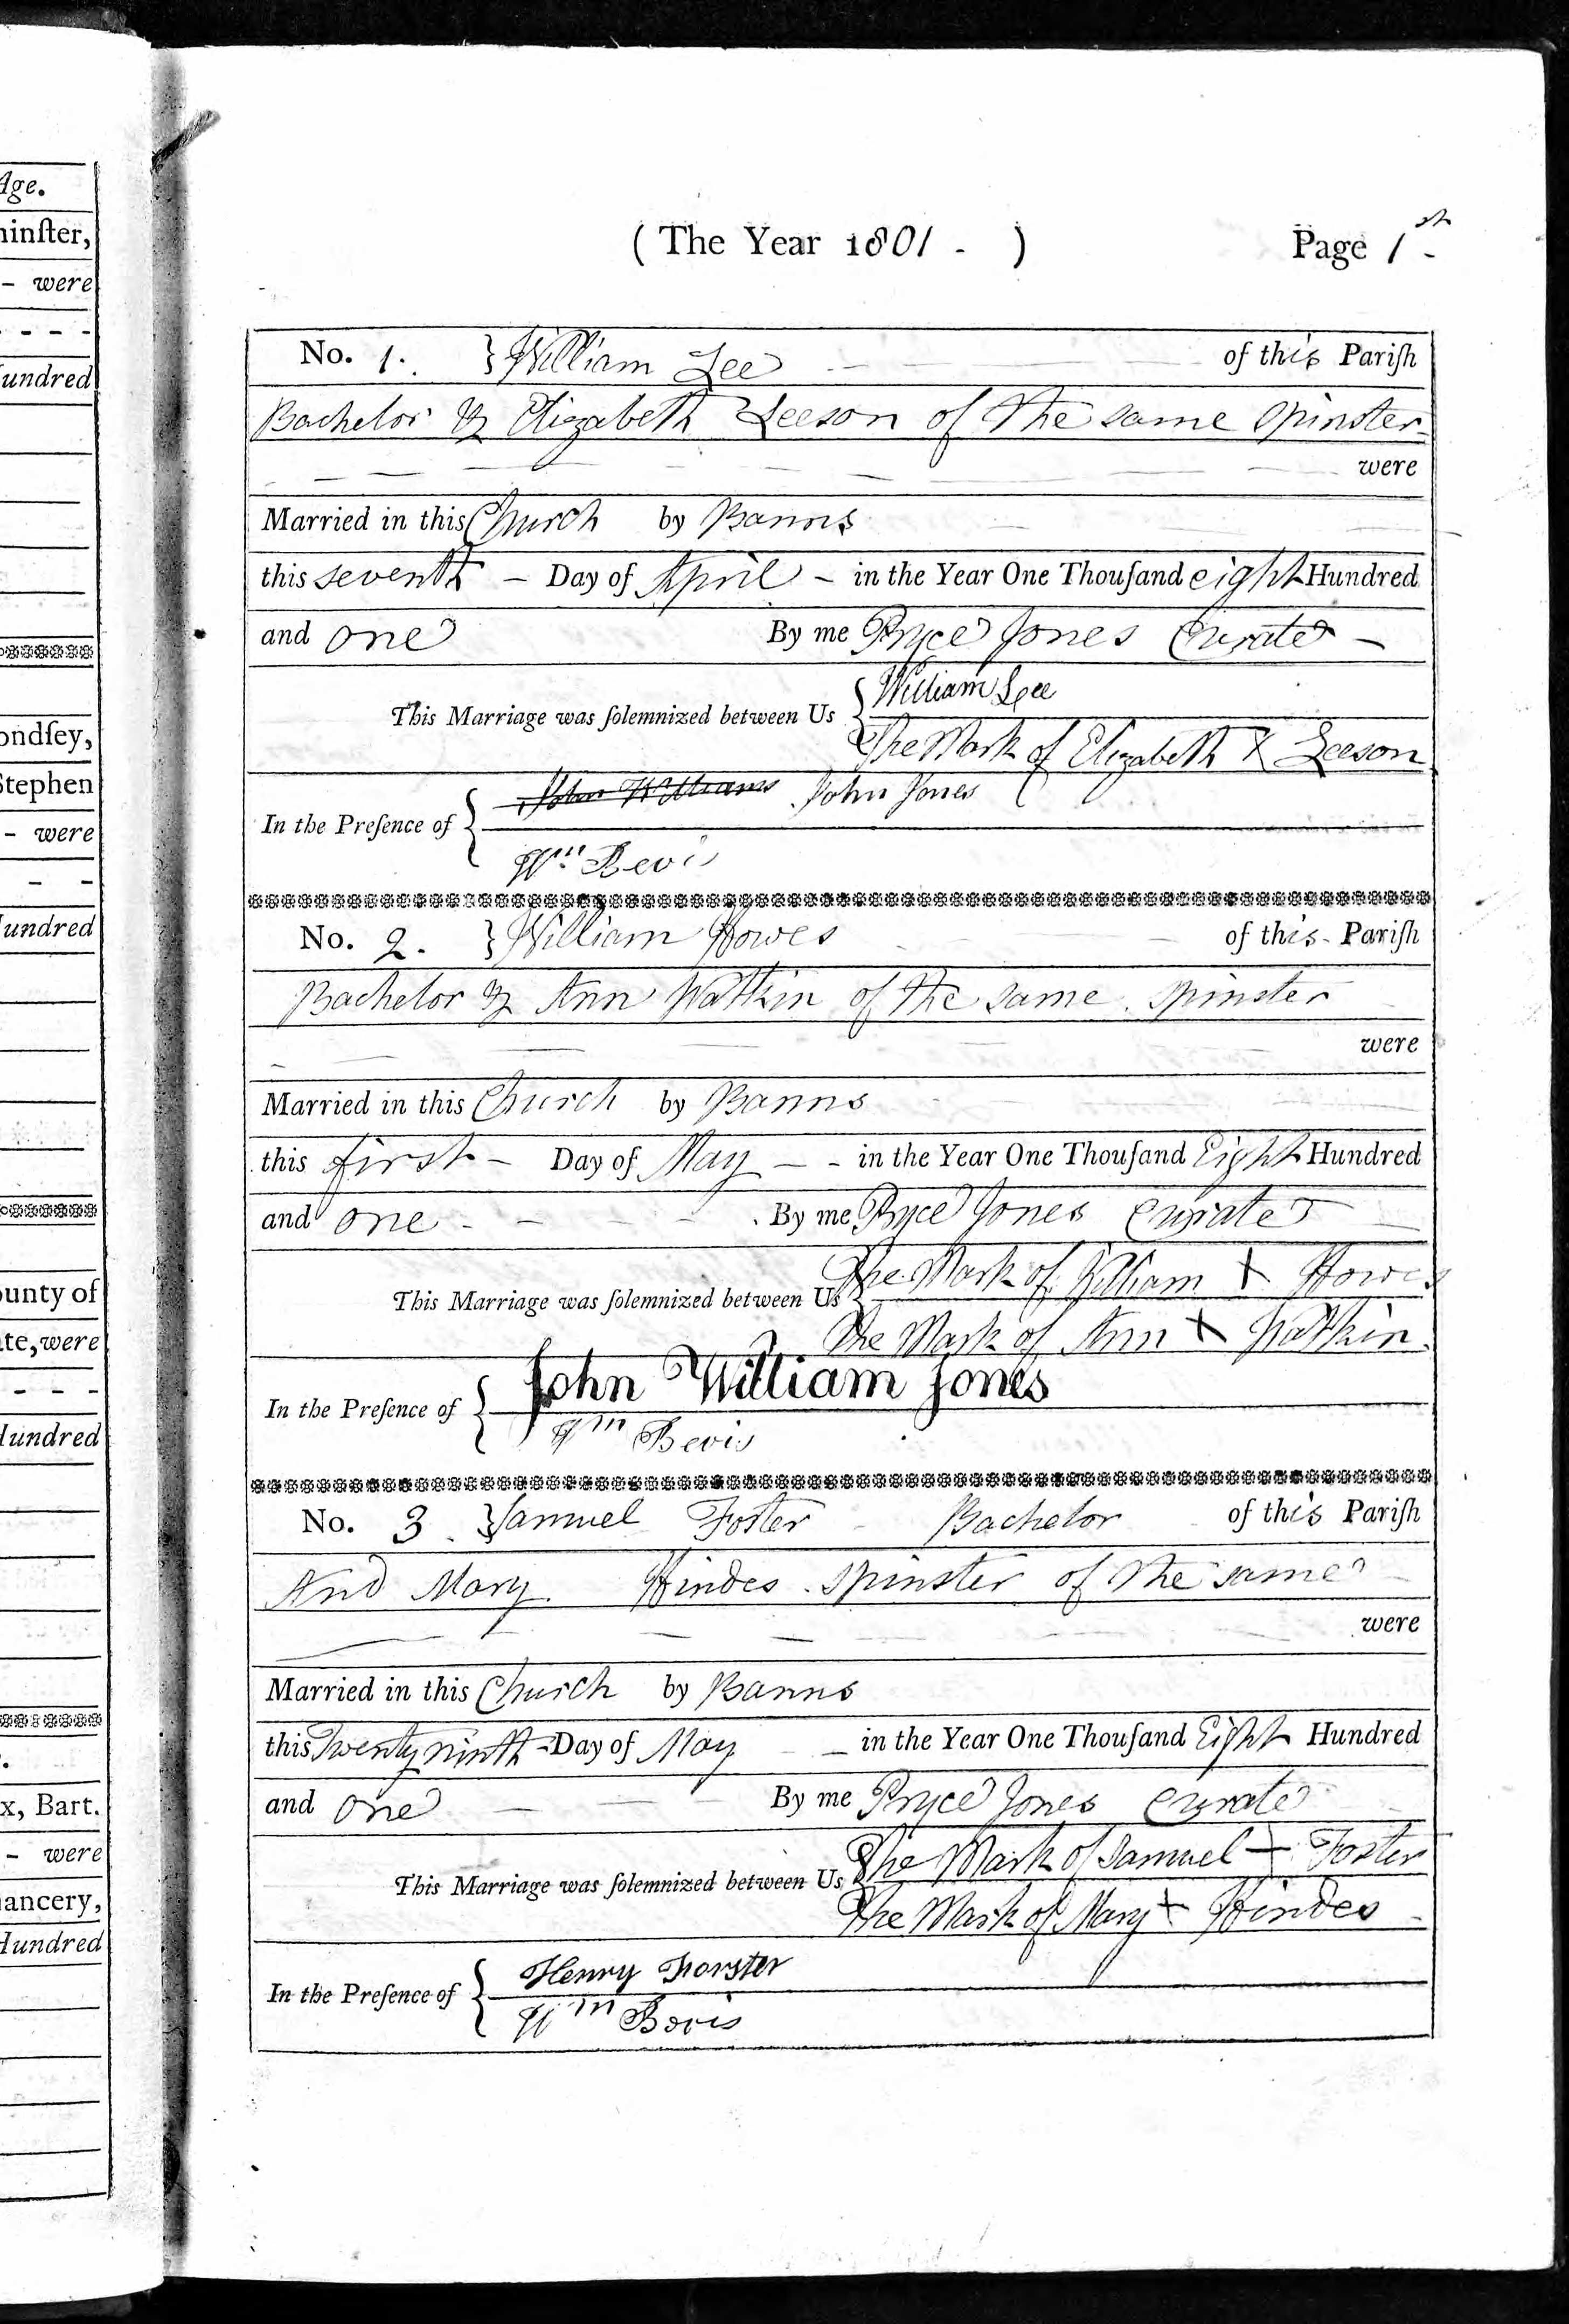 Age.
minſter,
- were
- - - -
Hundred
ondſey,
Stephen
- were
- -
Hundred
ounty of
te, were
- - -
Hundred
x, Bart.
- were
hancery,
Hundred
( The Year 1801 - ) Page 1st -
No. 1. } William Lee of this Pariſh
Bachelor & Elizabeth Leeson of the same Spinster
were
Married in this Church by Banns
this seventh - Day of April - in the Year One Thouſand eight Hundred
and one By me Pryce Jones Curate -
This Marriage was ſolemnized between Us { William Lee
The Mark of Elizabeth X Leeson
In the Preſence of { John Williams John Jones
Wm Bevis
No. 2. } William Howes of this - Pariſh
Bachelor & Ann Watkin of the same Spinster
were
Married in this Church by Banns
this first - Day of May - - in the Year One Thouſand Eight Hundred
and one - - - - By me Pryce Jones Curate
This Marriage was ſolemnized between Us { The Mark of William X Howes
The Mark of Ann X Watkin
In the Preſence of { John William Jones
Wm Bevis
No. 3 } Samuel Foster Bachelor of this Pariſh
And Mary Hindes Spinster of the same
were
Married in this Church by Banns
this Twenty ninth - Day of May - in the Year One Thouſand Eight Hundred
and one By me Pryce Jones Curate
This Marriage was ſolemnized between Us { The Mark of Samuel + Foster
The Mark of Mary + Hindes
In the Preſence of { Henry Forster
Wm Bevis